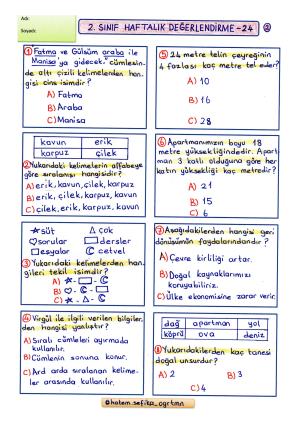 Adı:
Soyadı:
2. SINIF HAFTALIK DEĞERLENDİRME-24
2
1 Fatma ve Gülsüm araba ile
Manisa'ya gidecek" cümlesin-
de altı çizili kelimelerden han-
gisi cins isimdir?
A) Fatma
B) Araba
C) Manisa
kavun erik
karpuz çilek
2 Yukarıdaki kelimelerin alfabeye
göre sıralanışı hangisidir?
A) erik, kavun, çilek, karpuz
B) erik, çilek, kavun, karpuz
C) çilek, erik, karpuz, kavun
★süt △ çok
♡sorular □ dersler
□eşyalar ○ cetvel
3 Yukarıdaki kelimelerden han-
gileri tekil isimdir?
A) ★-○-□
B) ♡-○-□
C) ★-△-○
4 Virgül ile ilgili verilen bilgiler-
den hangisi yanlıştır?
A) Sıralı cümleleri ayırmada
kullanılır.
B) Cümlenin sonuna konur.
C) Ard arda sıralanan kelime-
ler arasında kullanılır.
5 24 metre telin çeyreğinin
4 fazlası kaç metre tel eder?
A) 10
B) 16
C) 28
6 Apartmanımızın boyu 18
metre yüksekliğindedir. Apart
man 3 katlı olduğuna göre her
katın yüksekliği kaç metredir?
A) 21
B) 15
C) 6
7 Aşağıdakilerden hangisi geri
dönüşümün faydalarındandır?
A) Çevre kirliliği artar.
B) Doğal kaynaklarımızı
koruyabiliriz.
C) Ülke ekonomisine zarar verir.
dağ apartman yol
köprü ova deniz
8 Yukarıdakilerden kaç tanesi
doğal unsurdur?
A) 2 B) 3
C) 4
@hatem_sefika_ogrtmn